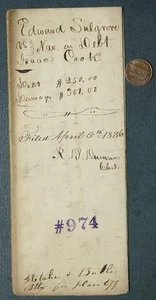 Edward Sulgrove
vs } Nar. in Debt
Isaac Cook
Debt $250.00
Damage $300.00
Filed April 8th 1836
R. B. Duncan
Clerk
#974
& Butler
Attys for plaintiff